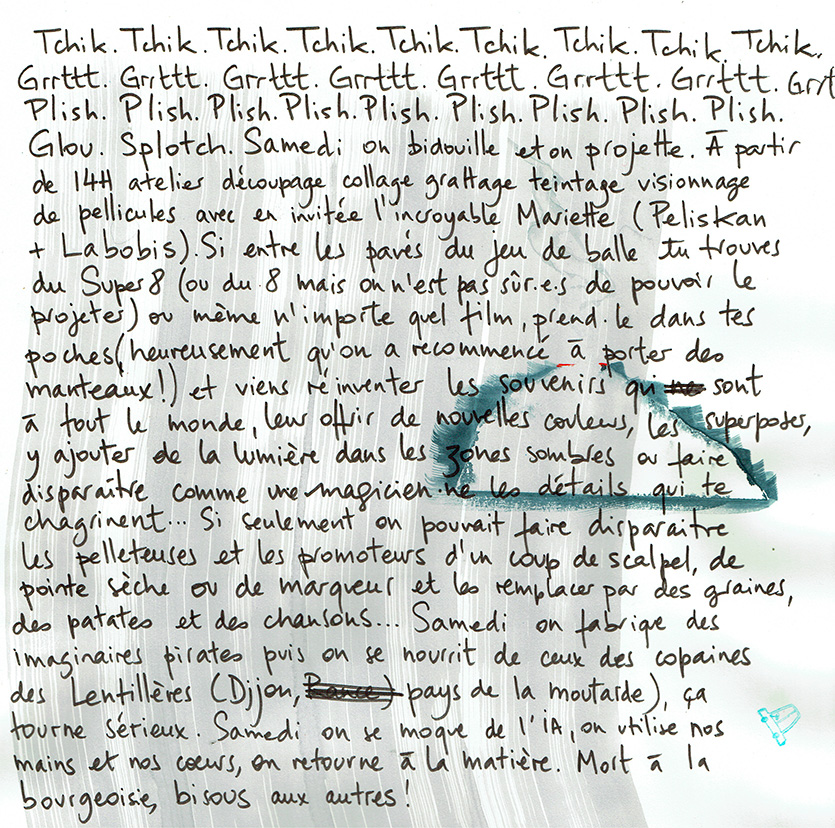 Tchik. Tchik. Tchik. Tchik. Tchik. Tchik. Tchik. Tchik. Tchik.
Grrttt. Grrttt. Grrttt. Grrttt. Grrttt. Grrttt. Grrttt. Grrt
Plish. Plish. Plish. Plish. Plish. Plish. Plish. Plish. Plish.
Glou. Splotch. Samedi on bidouille et on projette. À partir
de 14H atelier découpage collage grattage teintage visionnage
de pellicules avec en invitée l'incroyable Mariette (Peliskan
+ Labobis). Si entre les pavés du jeu de balle tu trouves
du Super8 (ou du 8 mais on n'est pas sûr.e.s de pouvoir le
projeter) ou même n'importe quel film, prend.le dans tes
poches (heureusement qu'on a recommencé à porter des
manteaux!) et viens réinventer les souvenirs qui ne sont
à tout le monde, leur offrir de nouvelles couleurs, les superposer,
y ajouter de la lumière dans les zones sombres ou faire
disparaître comme une magicien.ne les détails qui te
chagrinent... Si seulement on pouvait faire disparaitre
les pelleteuses et les promoteurs d'un coup de scalpel, de
pointe sèche ou de marqueur et les remplacer par des graines,
des patates et des chansons... Samedi on fabrique des
imaginaires pirates puis on se nourrit de ceux des copaines
des Lentillères (Dijon, France) pays de la moutarde), ça
tourne sérieux. Samedi on se moque de l'IA, on utilise nos
mains et nos cœurs, on retourne à la matière. Mort à la
bourgeoisie, bisous aux autres!